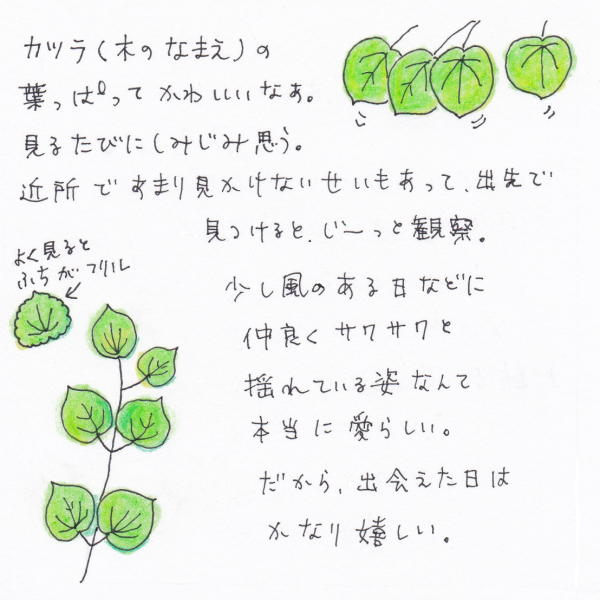 カツラ(木のなまえ)の
葉っぱって かわいいなぁ。
見るたびにしみじみ思う。
近所であまり見かけないせいもあって、出先で
見つけると、じーっと観察。
よく見ると
ふちがフリル
少し風のある日などに
仲良くサワサワと
揺れている姿なんて
本当に愛らしい。
だから、出会えた日は
かなり嬉しい。